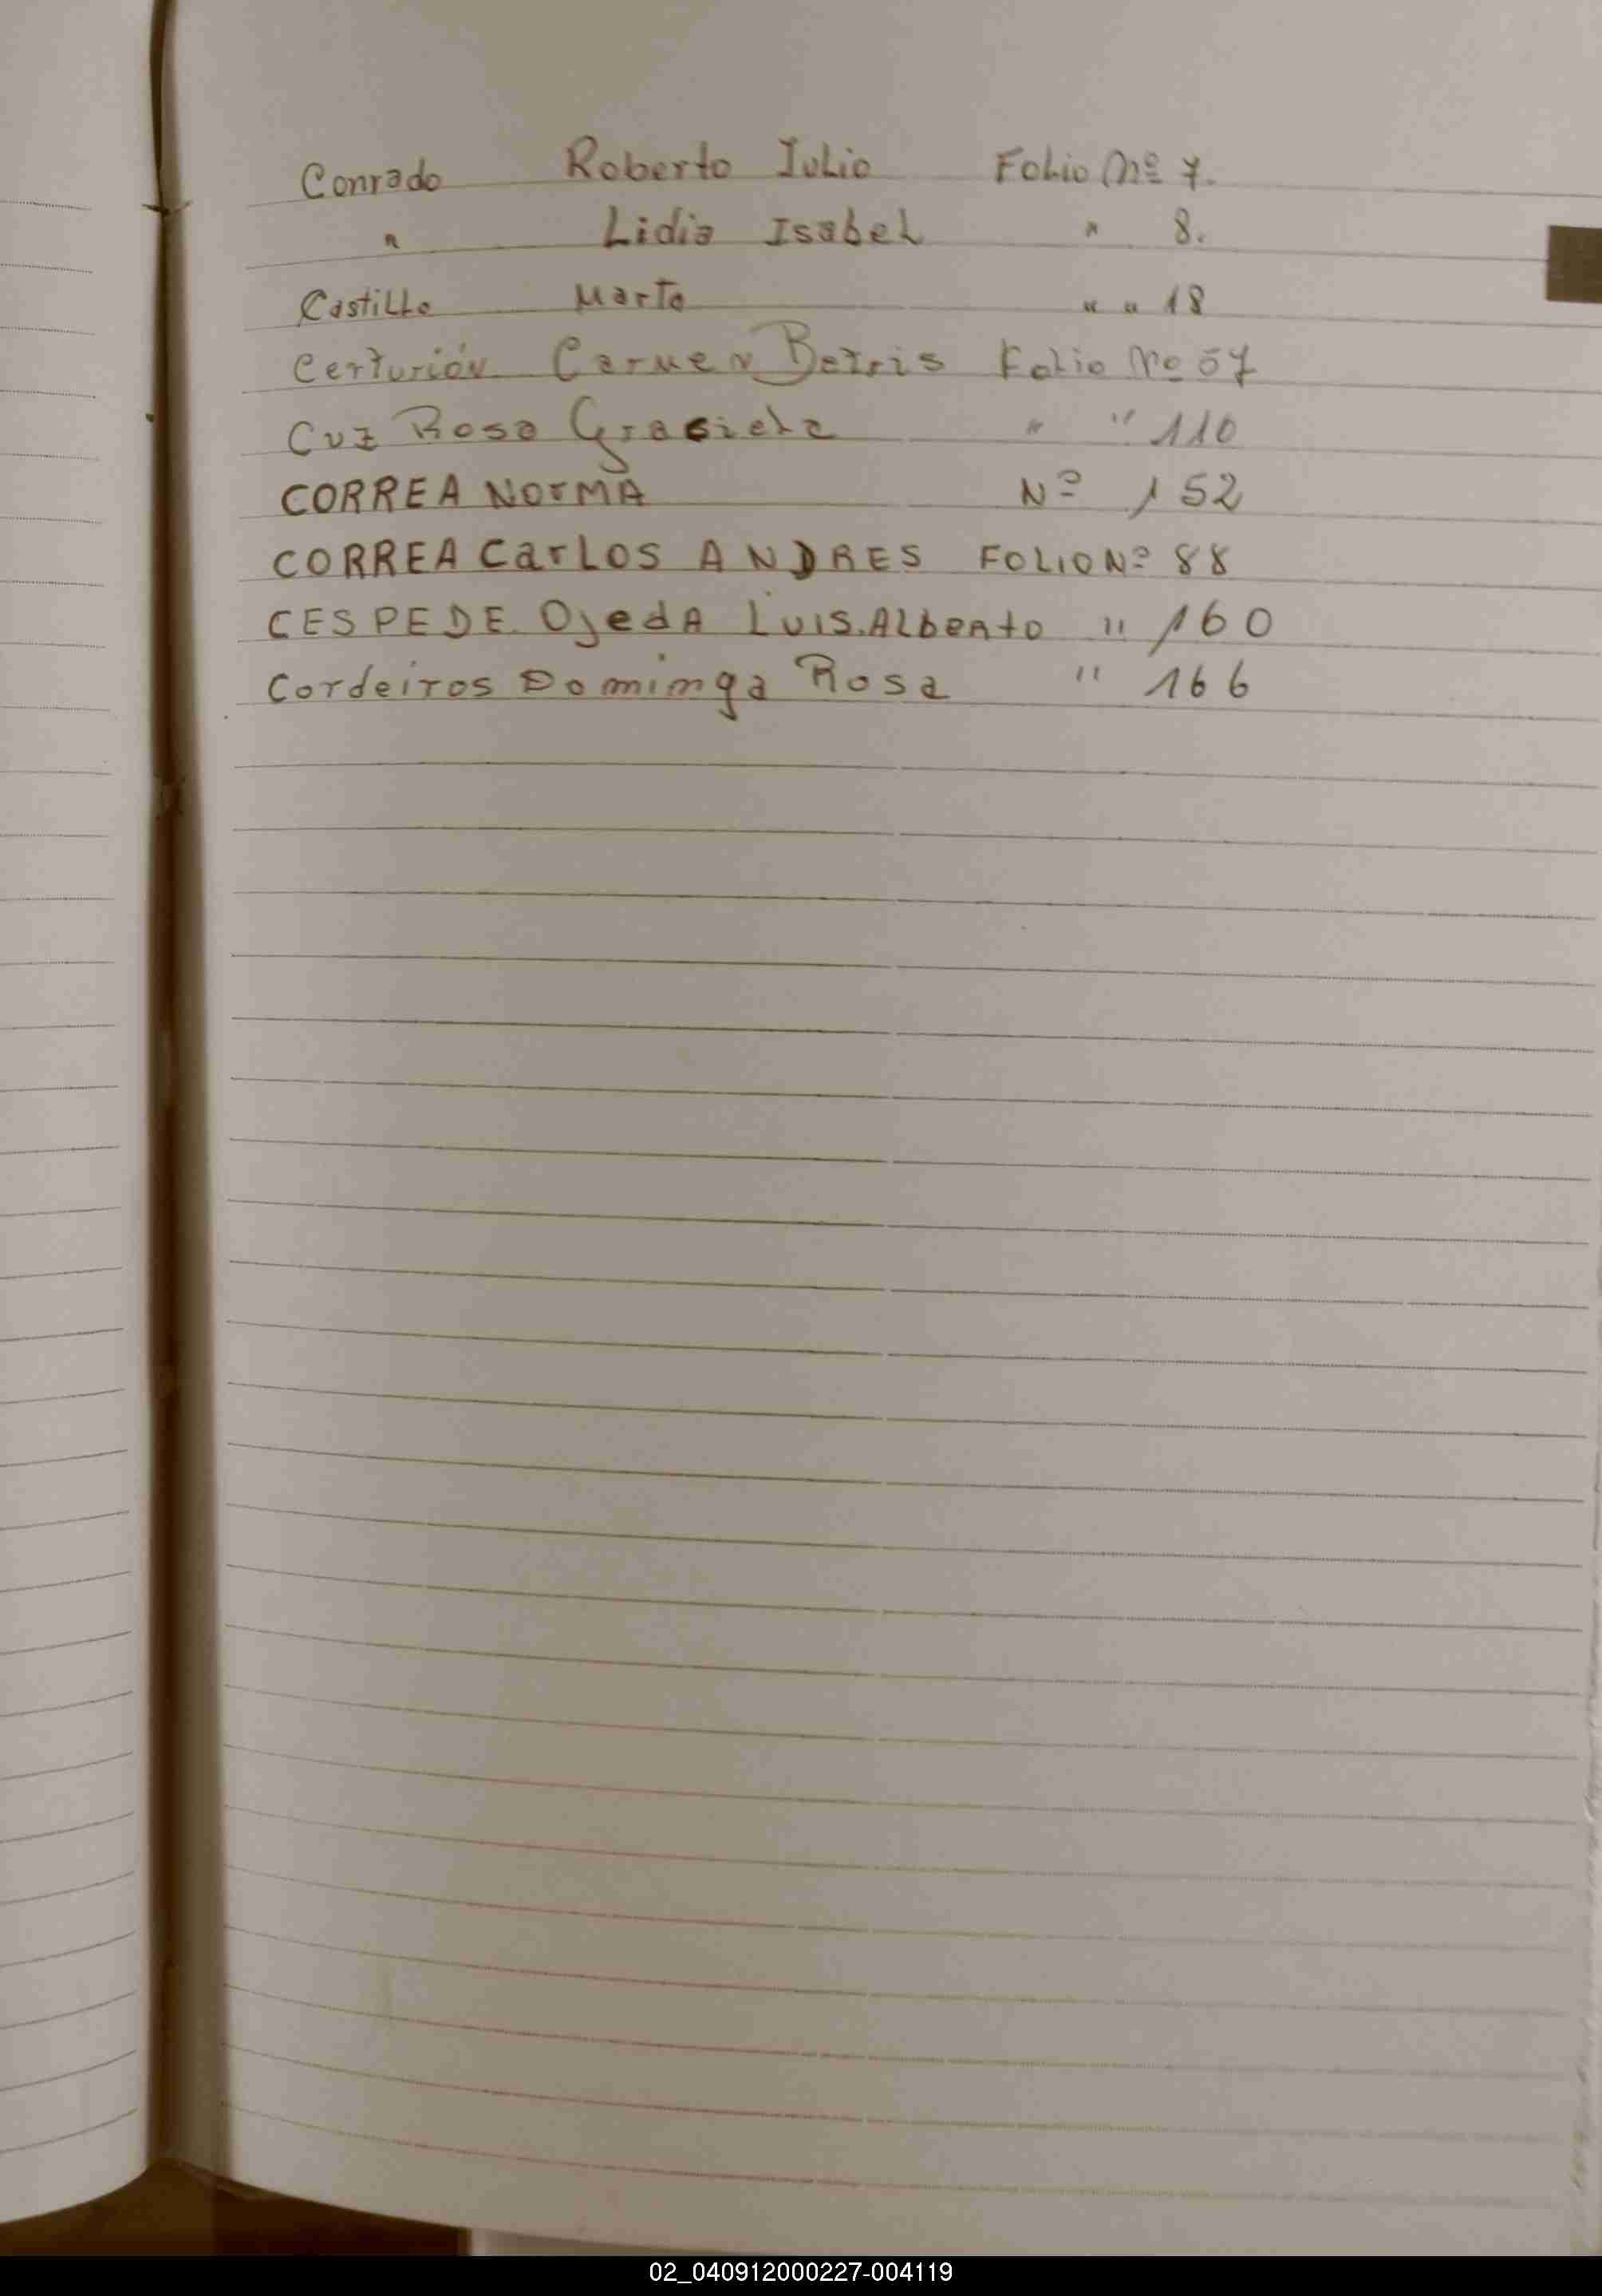 Conrado Roberto Julio Folio Nº 7.
" Lidia Isabel " 8.
Castillo Marta " " 18
Centurión Carmen Betris Folio Nº 57
Cuz Rosa Graciela " " 110
CORREA NOrMA Nº 152
CORREA CarLOS ANDRES FOLIO Nº 88
CESPEDE Ojeda LUIS.Alberto " 160
Cordeiros Dominga Rosa " 166
02_040912000227-004119